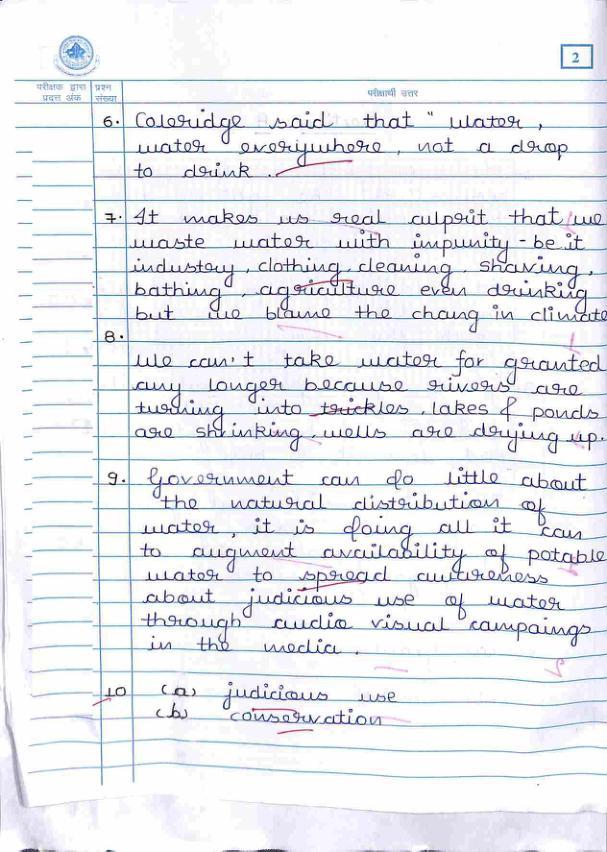 2
परीक्षक द्वारा प्रदत्त अंक
प्रश्न संख्या
परीक्षार्थी उत्तर
6. Coleridge said that " water ,
water everywhere , not a drop
to drink .
7. It makes us real culprit that we
waste water with impunity - be it
industry , clothing , cleaning , shaving ,
bathing , agriculture even drinking
but we blame the chang in climate
8.
We can't take water for granted
any longer because rivers are
turning into trickles . lakes & ponds
are shrinking , wells are drying up .
9. Government can do little about
the natural distribution of
water , it is doing all it can
to augment availability of potable
water to spread awareness
about judicious use of water
through audio visual campaings
in the media .
10 (a) judicious use
(b) conservation